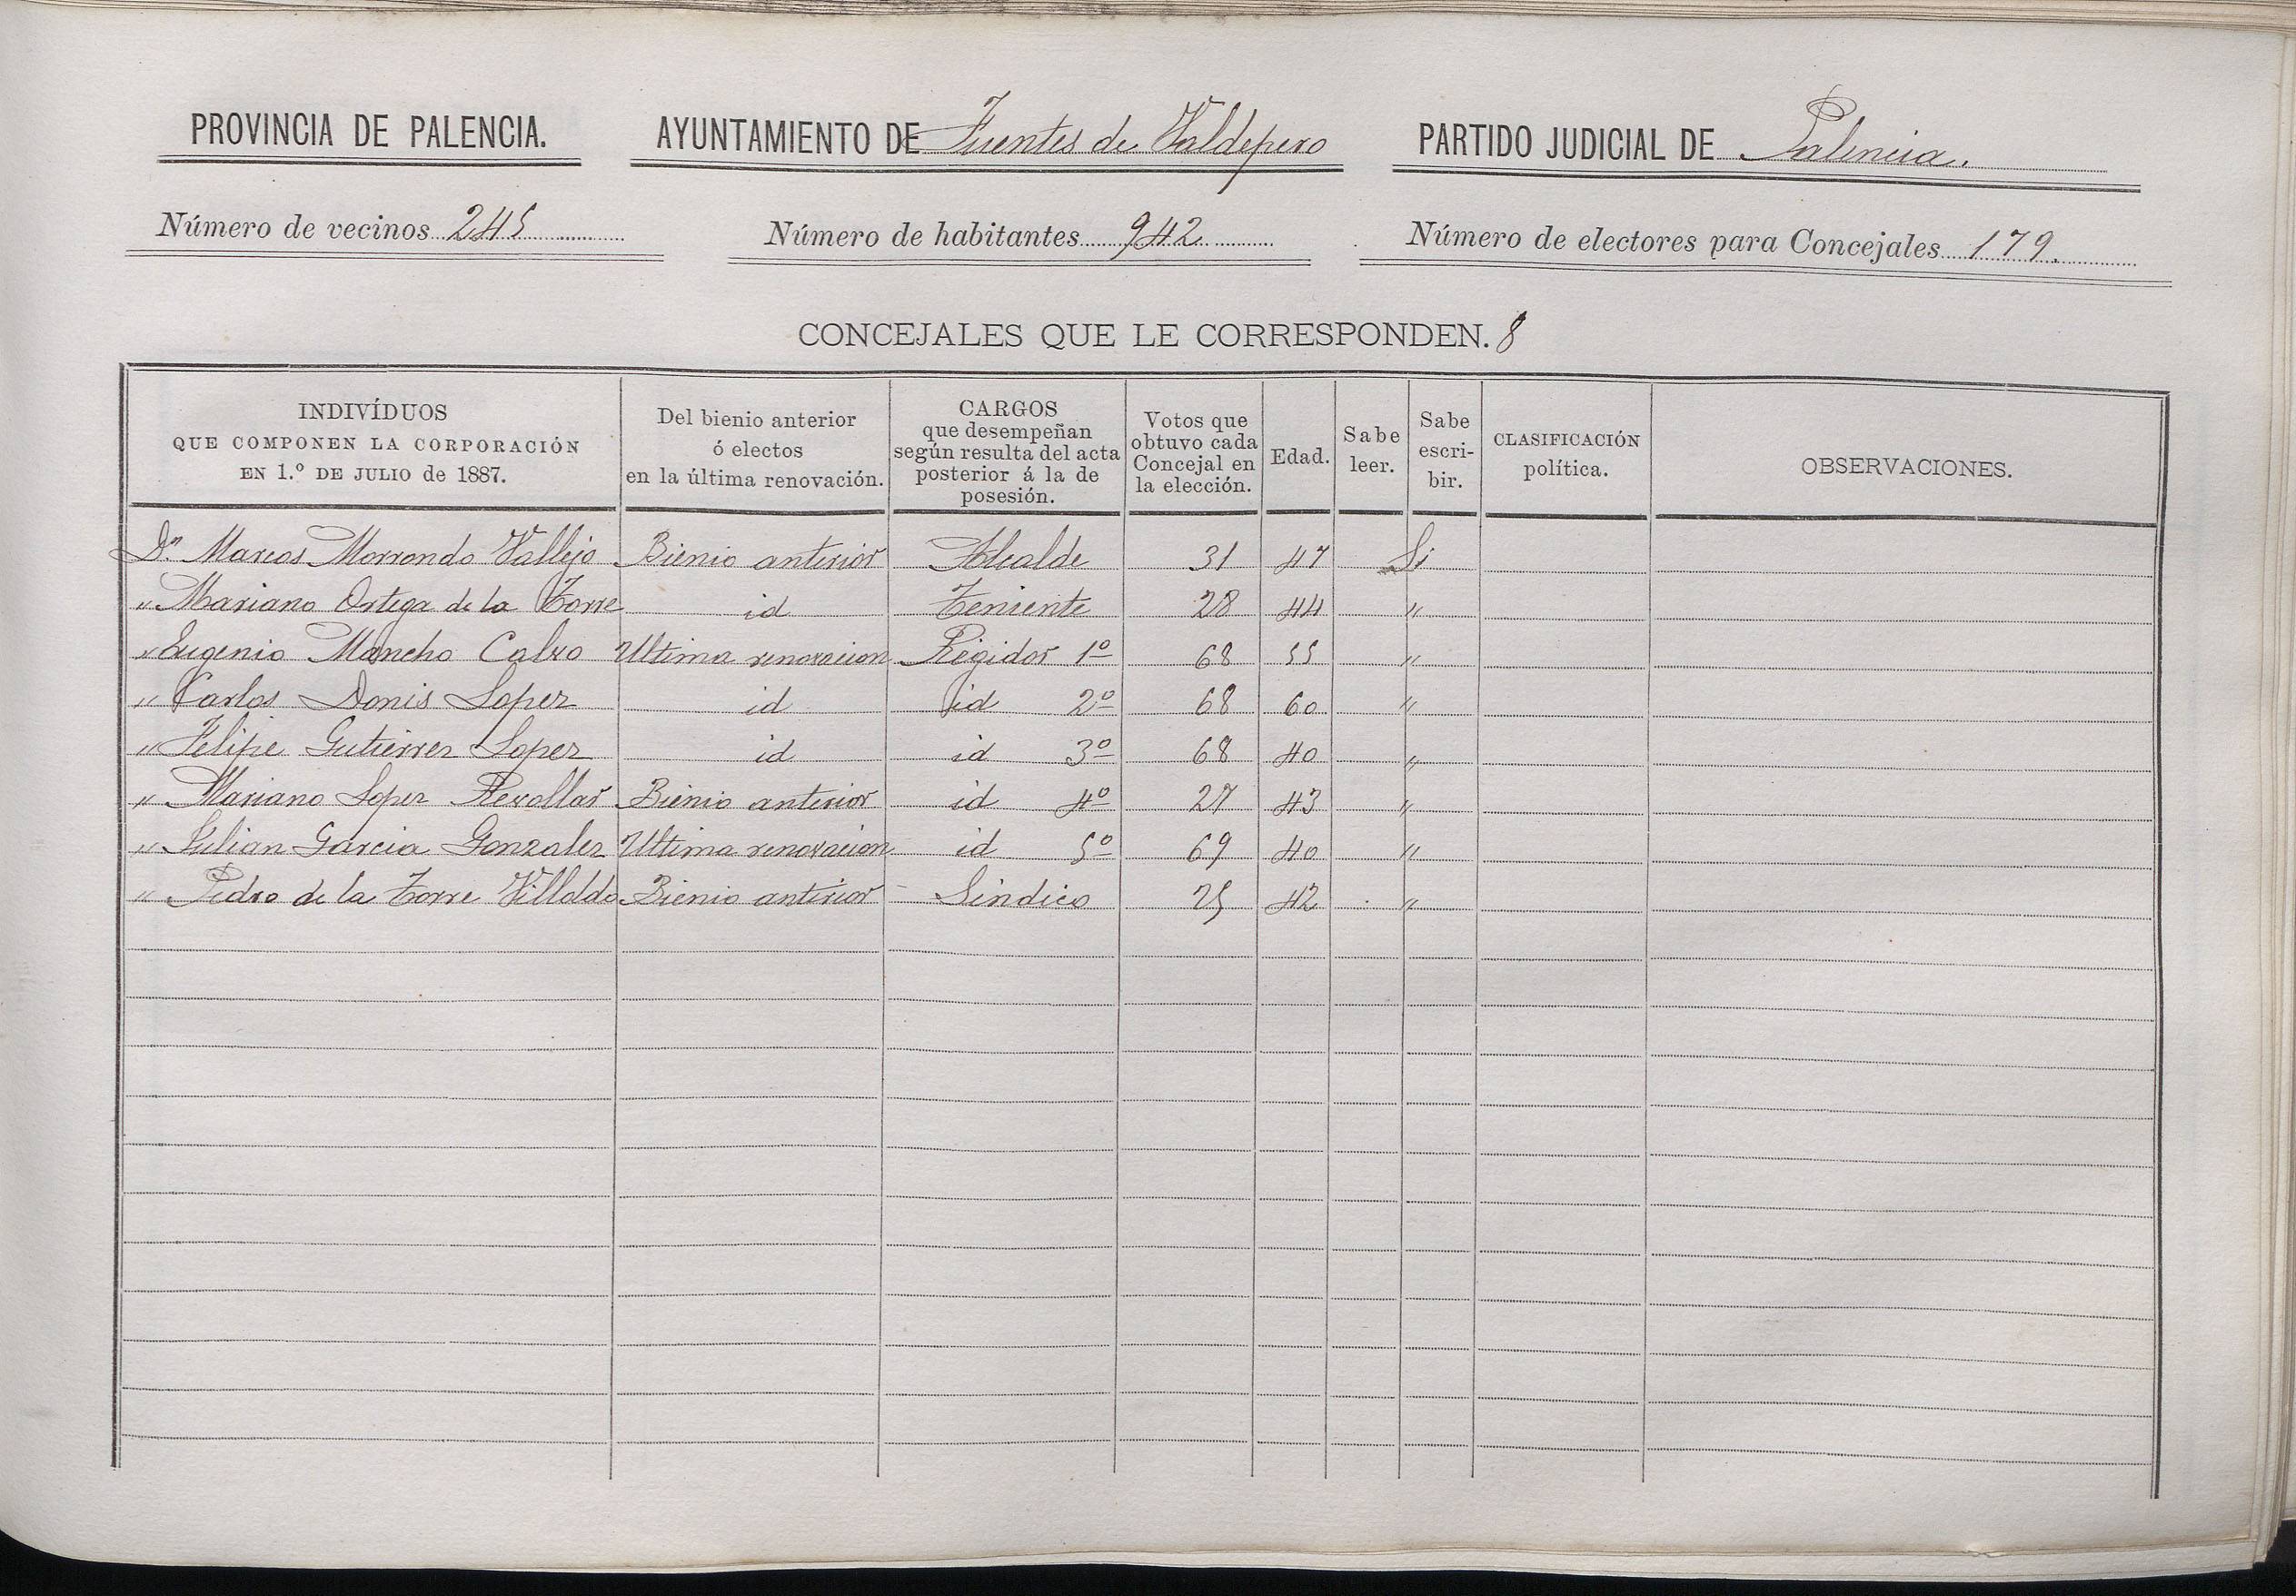 PROVINCIA DE PALENCIA. AYUNTAMIENTO DE Fuentes de Valdepero PARTIDO JUDICIAL DE Palencia.
Número de vecinos 245 Número de habitantes 942 Número de electores para Concejales 179.
CONCEJALES QUE LE CORRESPONDEN. 8
INDIVÍDUOS QUE COMPONEN LA CORPORACIÓN EN 1.º DE JULIO de 1887. Del bienio anterior ó electos en la última renovación. CARGOS que desempeñan según resulta del acta posterior á la de posesión. Votos que obtuvo cada Concejal en la elección. Edad. Sabe leer. Sabe escri-bir. CLASIFICACIÓN política. OBSERVACIONES.
Dn. Marcos Morrondo Vallejo Bienio anterior Alcalde 31 47 Si
" Mariano Ortega de la Torre id Teniente 28 44 "
" Eugenio Mancho Calvo Ultima renovacion Regidor 1º 68 55 "
" Carlos Donis Lopez id id 2º 68 60 "
" Felipe Gutierrez Lopez id id 3º 68 40 "
" Mariano Lopez Revollar Bienio anterior id 4º 27 43 "
" Julian Garcia Gonzalez Ultima renovacion id 5º 69 40 "
" Pedro de la Torre Villoldo Bienio anterior Sindico 25 42 "